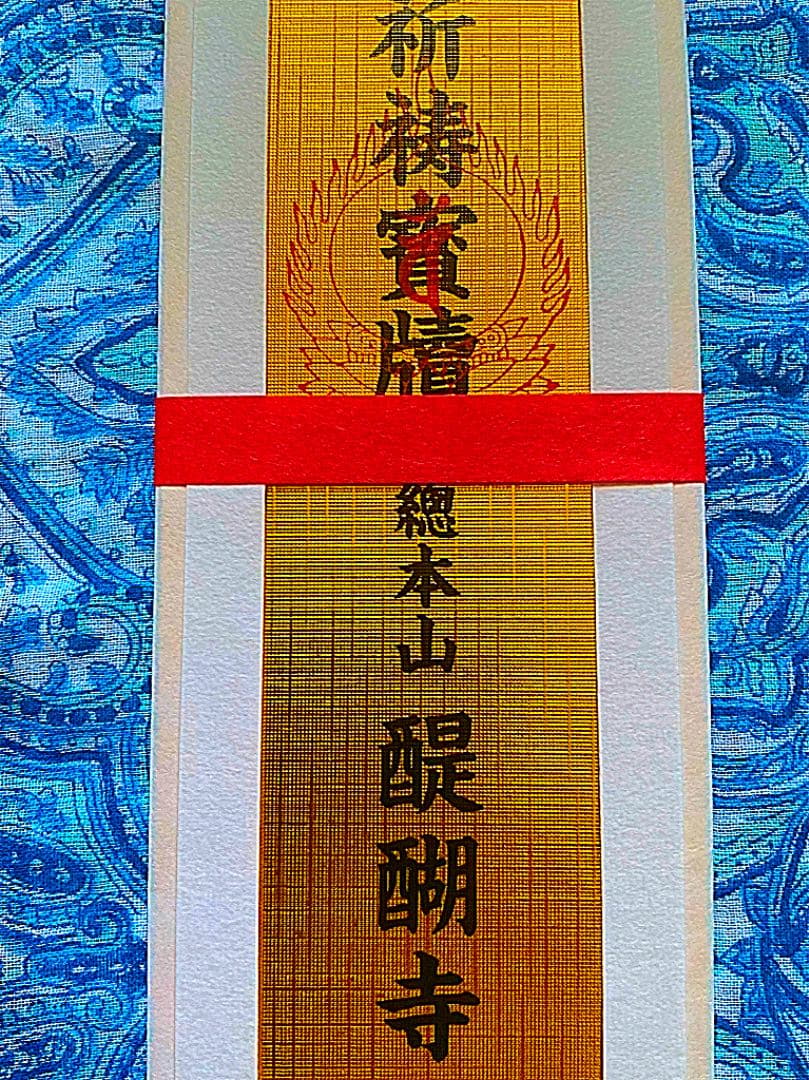 祈祷寳牘
總本山 醍醐寺